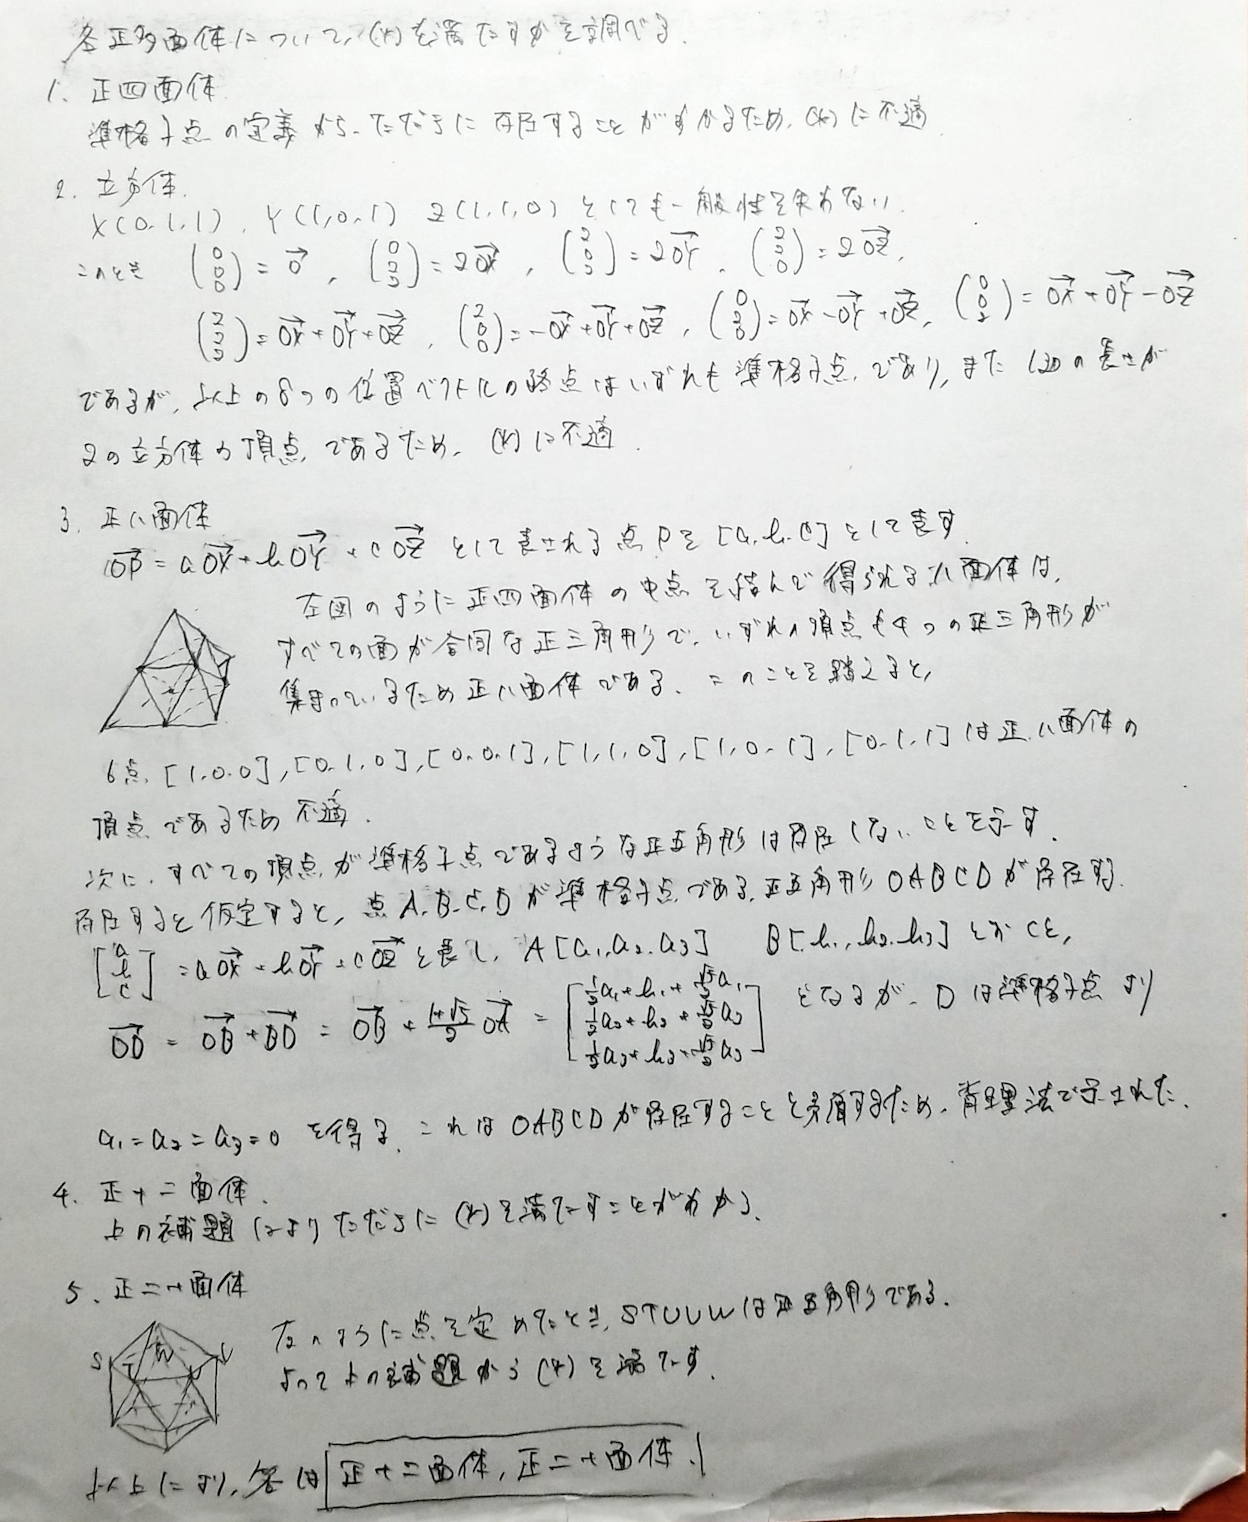 各正多面体について,(*)を満たすかを調べる.
1. 正四面体
準格子点の定義から、ただちに存在することがわかるため,(*)に不適
2. 立方体.
X(0,1,1), Y(1,0,1) Z(1,1,0) としても一般性を失わない.
このとき (0 0 0) = 0→, (0 2 2) = 2OX→, (2 0 2) = 2OY→, (2 2 0) = 2OZ→,
(2 2 2) = OX→+OY→+OZ→, (2 0 0) = -OX→+OY→+OZ→, (0 2 0) = OX→-OY→+OZ→, (0 0 2) = OX→+OY→-OZ→
であるが,以上の8つの位置ベクトルの終点はいずれも準格子点であり,また1辺の長さが
2の立方体の頂点であるため,(*)に不適.
3. 正八面体
OP→ = aOX→+bOY→+cOZ→ として表される点Pを[a,b,c]として表す.
左図のように正四面体の中点を結んで得られる八面体は,
すべての面が合同な正三角形で,いずれの頂点も4つの正三角形が
集まっているため正八面体である.このことを踏まえると,
6点,[1,0,0],[0,1,0],[0,0,1],[1,1,0],[1,0,1],[0,1,1]は正八面体の
頂点であるため不適.
次に,すべての頂点が準格子点であるような正五角形は存在しないことを示す.
存在すると仮定すると,点A,B,C,Dが準格子点である正五角形OABCDが存在する.
[a b c] = aOX→+bOY→+cOZ→と表し,A[a₁,a₂,a₃] B[b₁,b₂,b₃]とおくと,
OD→ = OB→+BD→ = OB→+(1+√5)/2 OA→ = [1/2a₁+b₁+√5/2a₁ 1/2a₂+b₂+√5/2a₂ 1/2a₃+b₃+√5/2a₃] となるが,Dは準格子点より
a₁=a₂=a₃=0 を得る.これはOABCDが存在することと矛盾するため,背理法で示された.
4. 正十二面体.
上の補題によりただちに(*)を満たすことがわかる.
5. 正二十面体
S T W U V
左のように点を定めたとき,STUVWは正五角形である.
よって上の補題から(*)を満たす.
以上により,答は 正十二面体,正二十面体.